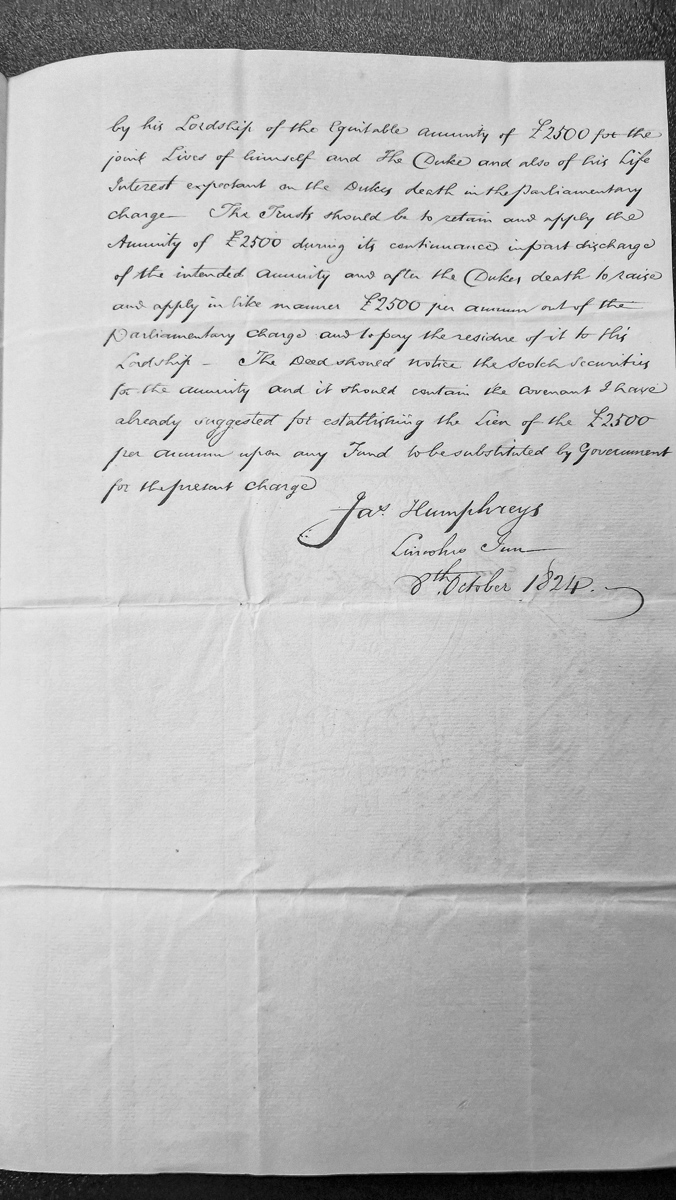 by his Lordship of the Equitable annuity of £2500 for the
joint Lives of himself and The Duke and also of his Life
Interest expectant on the Dukes death in the Parliamentary
charge — The Trusts should be to retain and apply the
Annuity of £2500 during its continuance in part discharge
of the intended annuity and after the Dukes death to raise
and apply in like manner £2500 per annum out of the
Parliamentary charge and to pay the residue of it to His
Lordship — The Deed should notice the Scotch Securities
for the annuity and it should contain the covenant I have
already suggested for establishing the Lien of the £2500
per annum upon any Fund to be substituted by Government
for the present charge
Jas Humphreys
Lincolns Inn
8th October 1824.